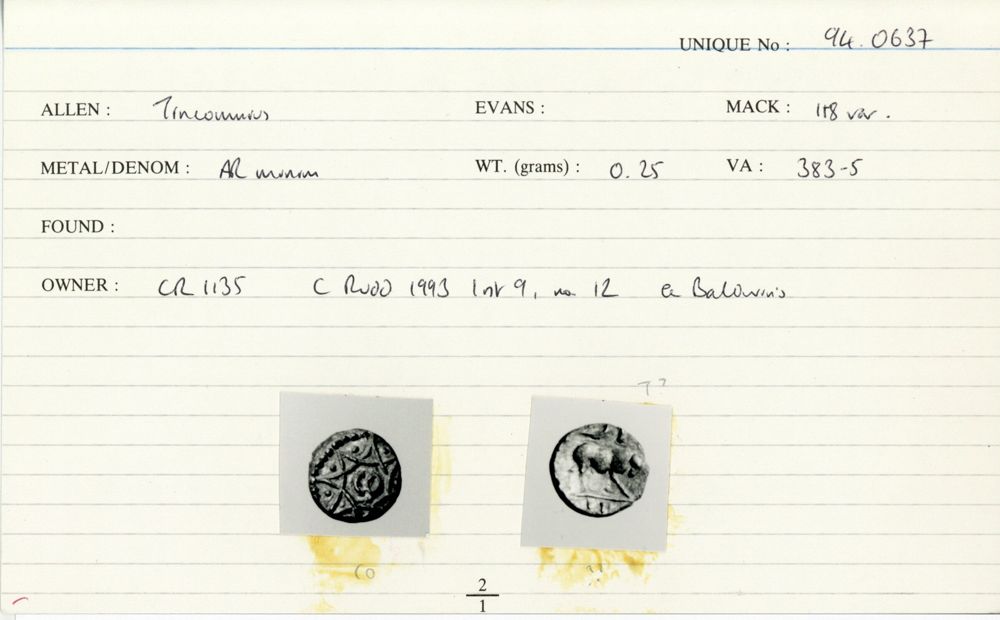 UNIQUE No : 94.0637
ALLEN : Tincommius EVANS : MACK : 118 var.
METAL/DENOM : AR minim WT. (grams) : 0.25 VA : 383-5
FOUND :
OWNER : CR 1135 C Rudd 1993 list 9, no 12 ex Baldwin's
T?
CO
2
1